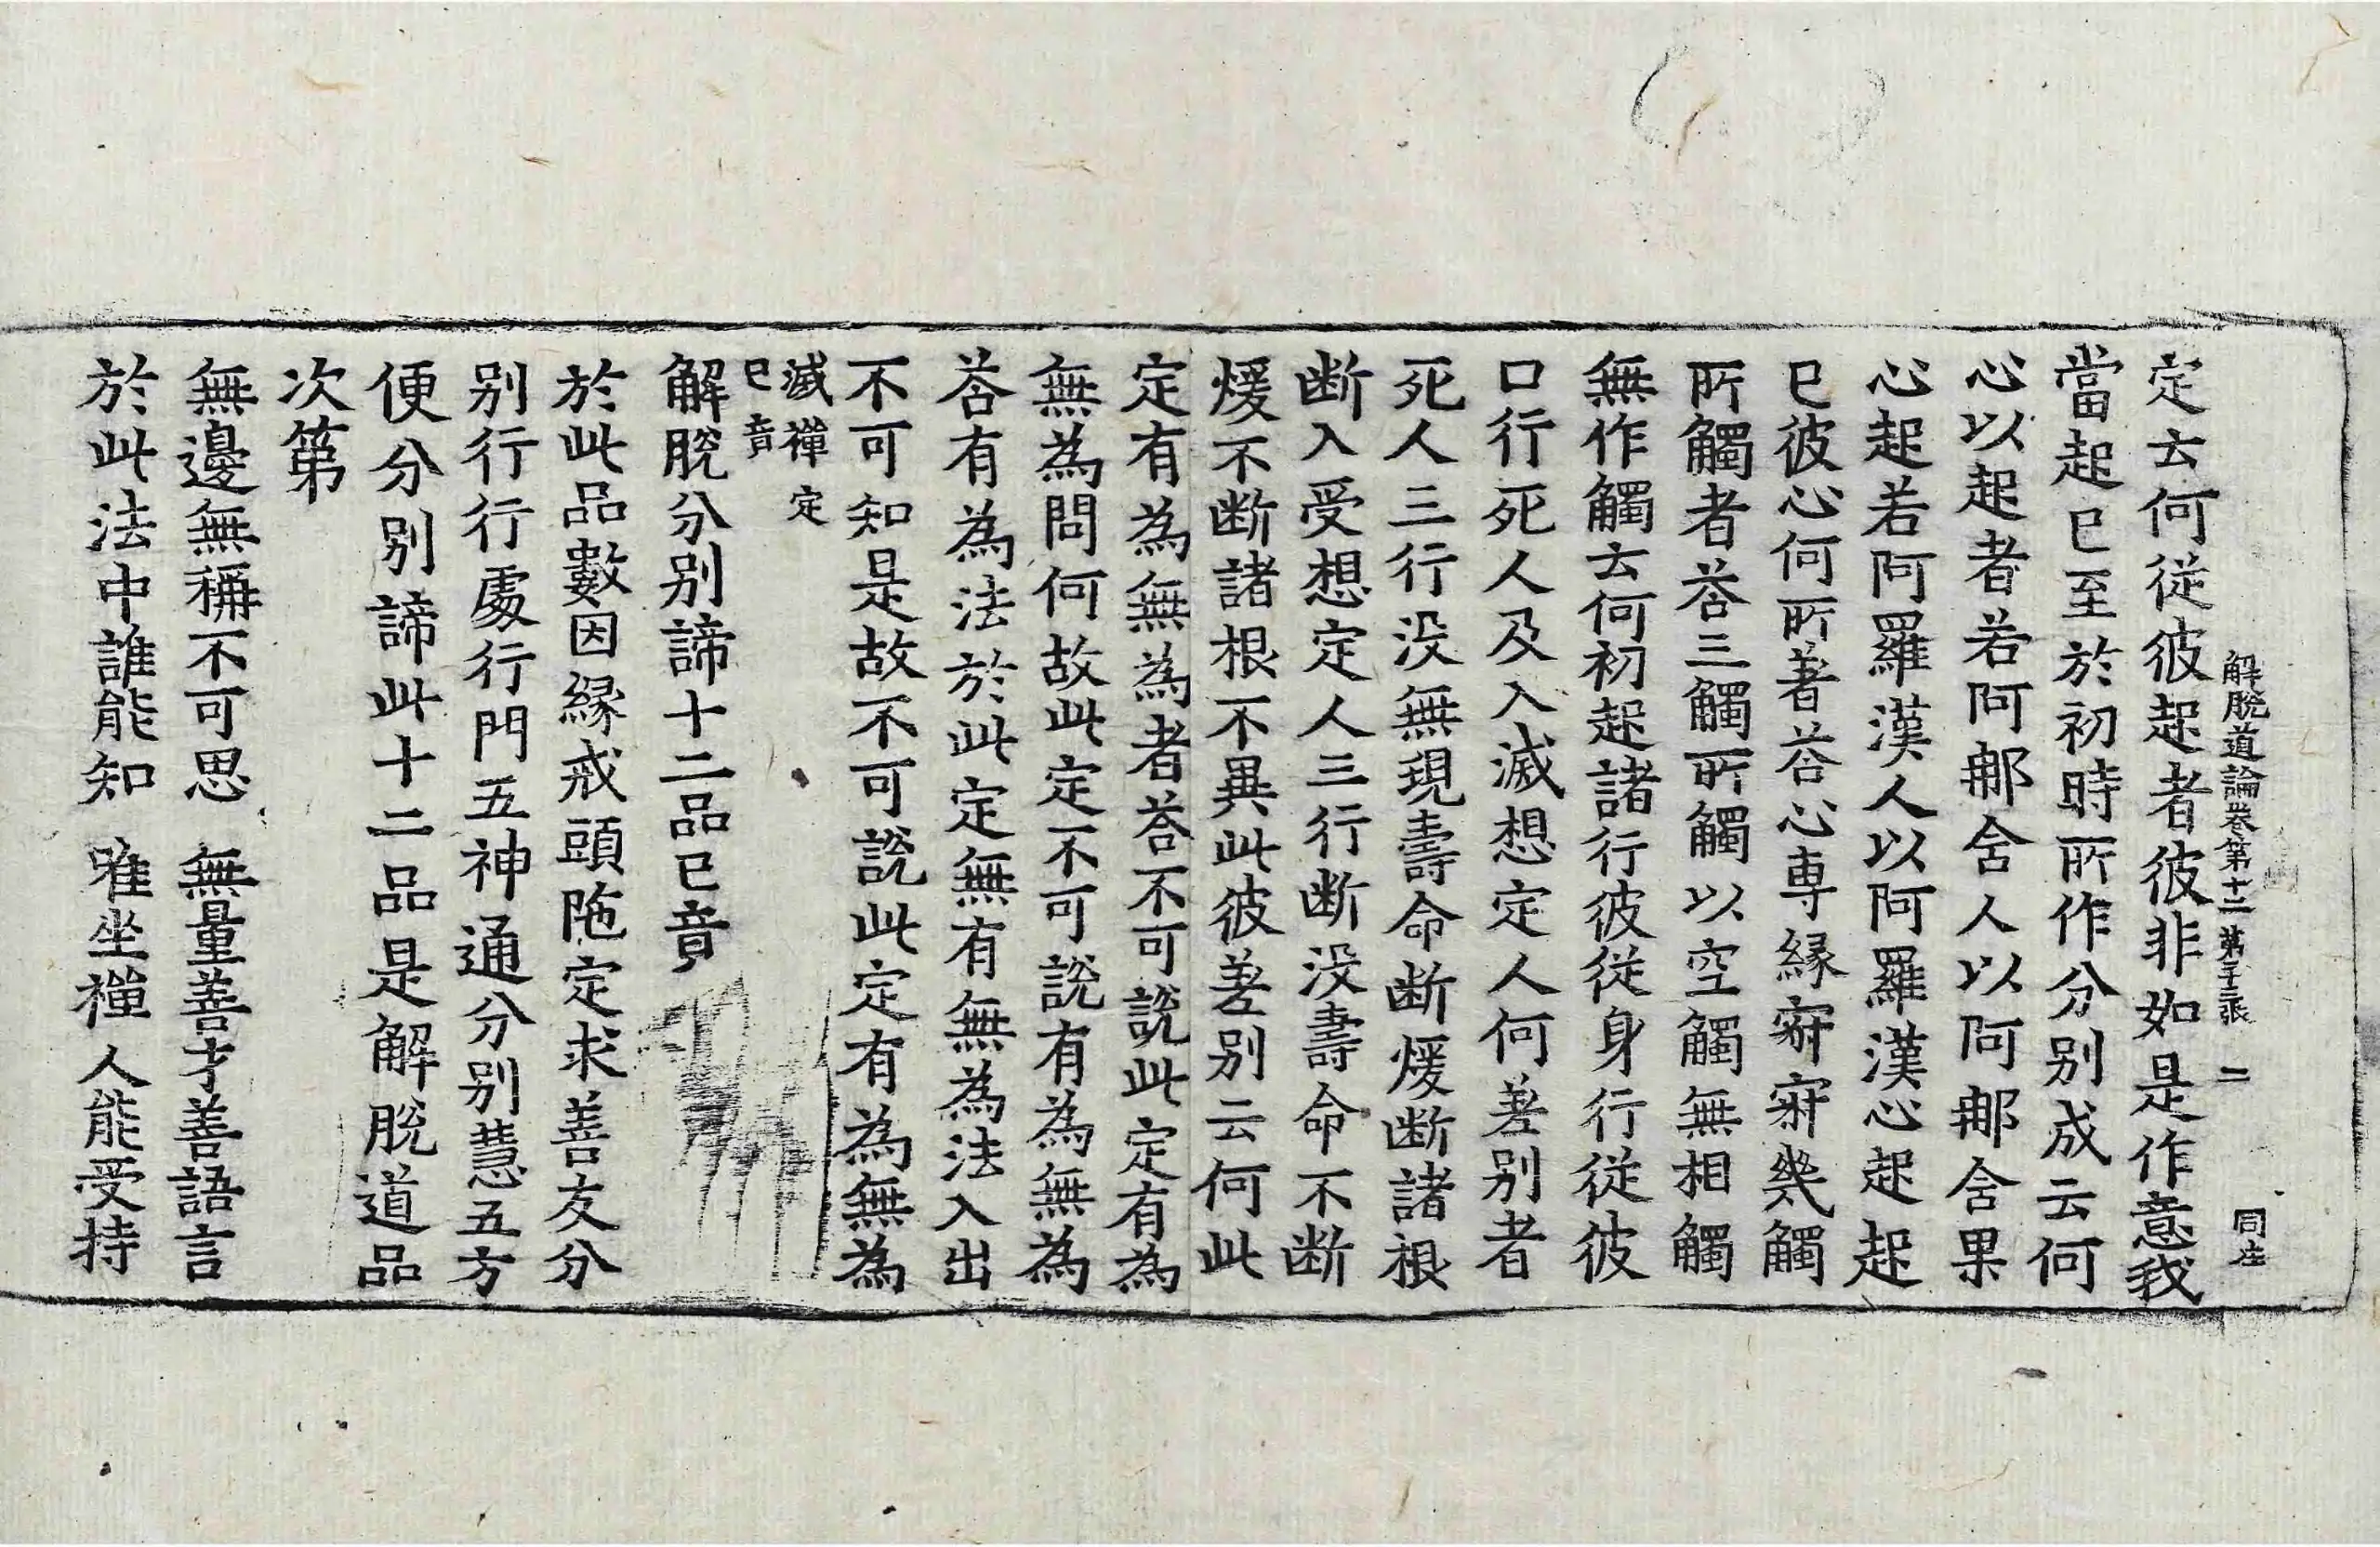 解脫道論卷第十二 第二十三張 二 同庄
定去何從彼起者彼非如是作意我
當起已至於初時所作分別成云何
心以起者若阿那含人以阿那含果
心起若阿羅漢人以阿羅漢心起起
已彼心何所著荅心専縁寂寂幾觸
所觸者荅三觸所觸以空觸無相觸
無作觸去何初起諸行彼從身行從彼
口行死人及入滅想定人何差別者
死人三行没無現壽命断煖断諸根
断入受想定人三行断没壽命不断
煖不断諸根不異此彼差別云何此
定有為無為者荅不可說此定有為
無為問何故此定不可說有為無為
荅有為法於此定無有無為法入出
不可知是故不可說此定有為無為
滅禪定
已竟
解脫分別諦十二品已竟
於此品數因縁戒頭陁定求善友分
別行行處行門五神通分別慧五方
便分別諦此十二品是解脫道品
次第
無邊無稱不可思 無量善才善語言
於此法中誰能知 唯坐禪人能受持